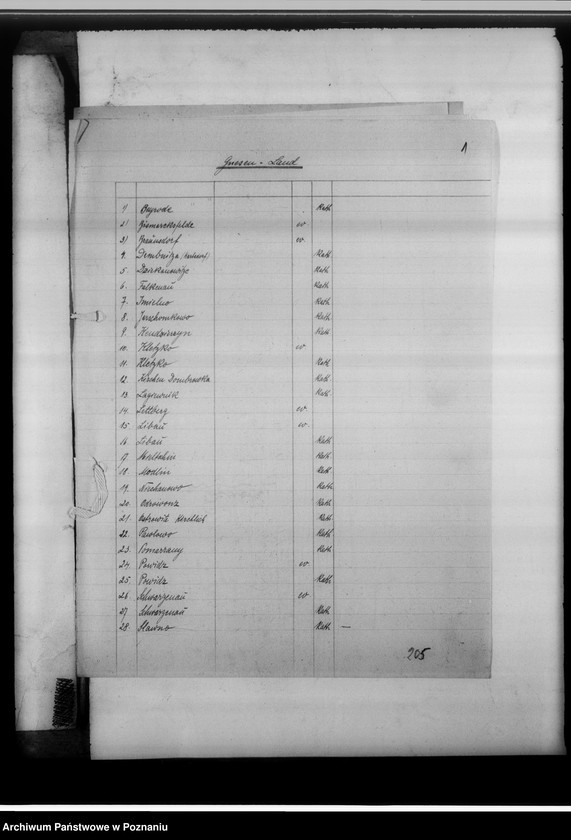 1
Gnesen - Land
1. Kath.
2) Bismarcksfelde ev.
3) ev.
4. Dembnitza, Kath.
5. Dziekanowice Kath.
6. Falkenau Kath.
7. Imielno Kath.
8. Kath.
9. Kendzierzyn Kath.
10. Kletzko ev.
11. Kletzko Kath.
12. Kirchen Dombrowka Kath.
13. Lagiewnik Kath.
14. Lettberg ev.
15. Libau ev.
16. Libau Kath.
17. Kath.
18. Modlin Kath.
19. Niechanowo Kath.
20. Odrowonz Kath.
21. Ostrowit Kath.
22. Pawlowo Kath.
23. Pomarzany Kath.
24. Powidz ev.
25. Powidz Kath.
26. Schwarzenau ev.
27. Schwarzenau Kath.
28. Slawno Kath. —
205
Archiwum Państwowe w Poznaniu